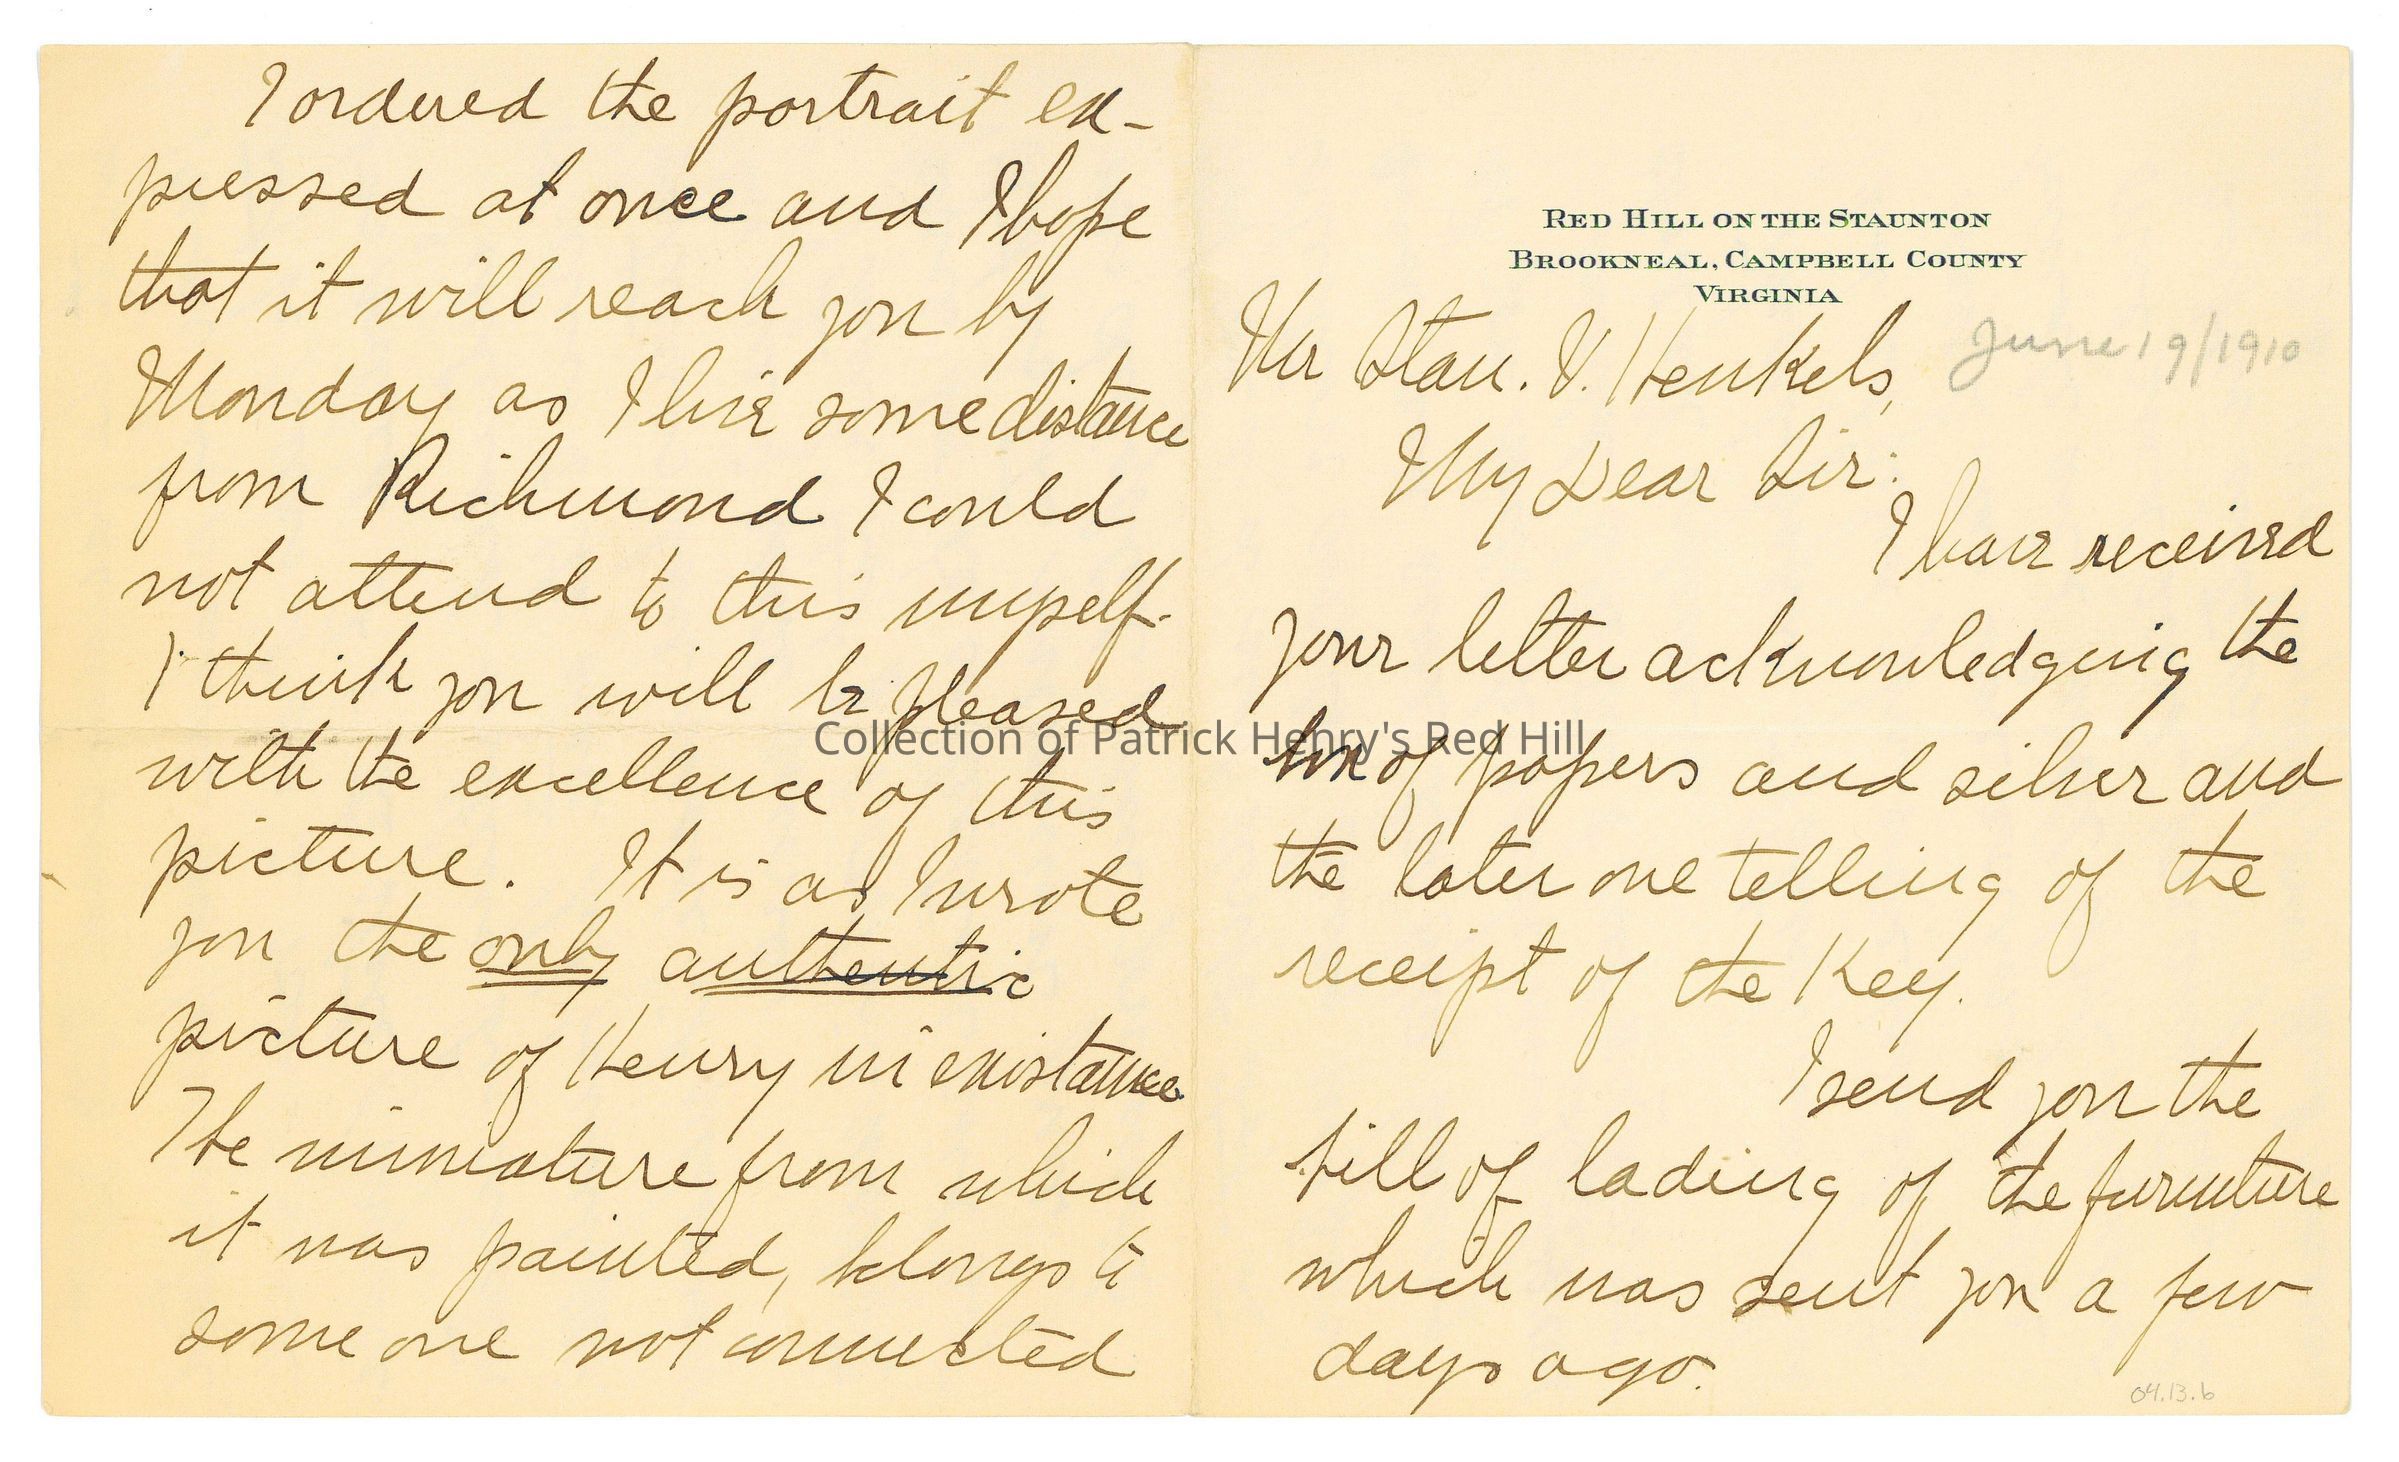 RED HILL ON THE STAUNTON
BROOKNEAL, CAMPBELL COUNTY
VIRGINIA
June 19/1910
Mr Stan. V. Henkels,
My Dear Sir:
I have received
your letter acknowledging the
box of papers and silver and
the later one telling of the
receipt of the Key.
I send you the
bill of lading of the furniture
which was sent you a few
days ago.
04.13.6
I ordered the portrait ex-
pressed at once and I hope
that it will reach you by
Monday as I live some distance
from Richmond I could
not attend to this myself.
I think you will be pleased
with the excellence of this
picture. It is as I wrote
you the only authentic
picture of Henry in existance
The miniature from which
it was painted, belongs to
some one not connected
Collection of Patrick Henry's Red Hill